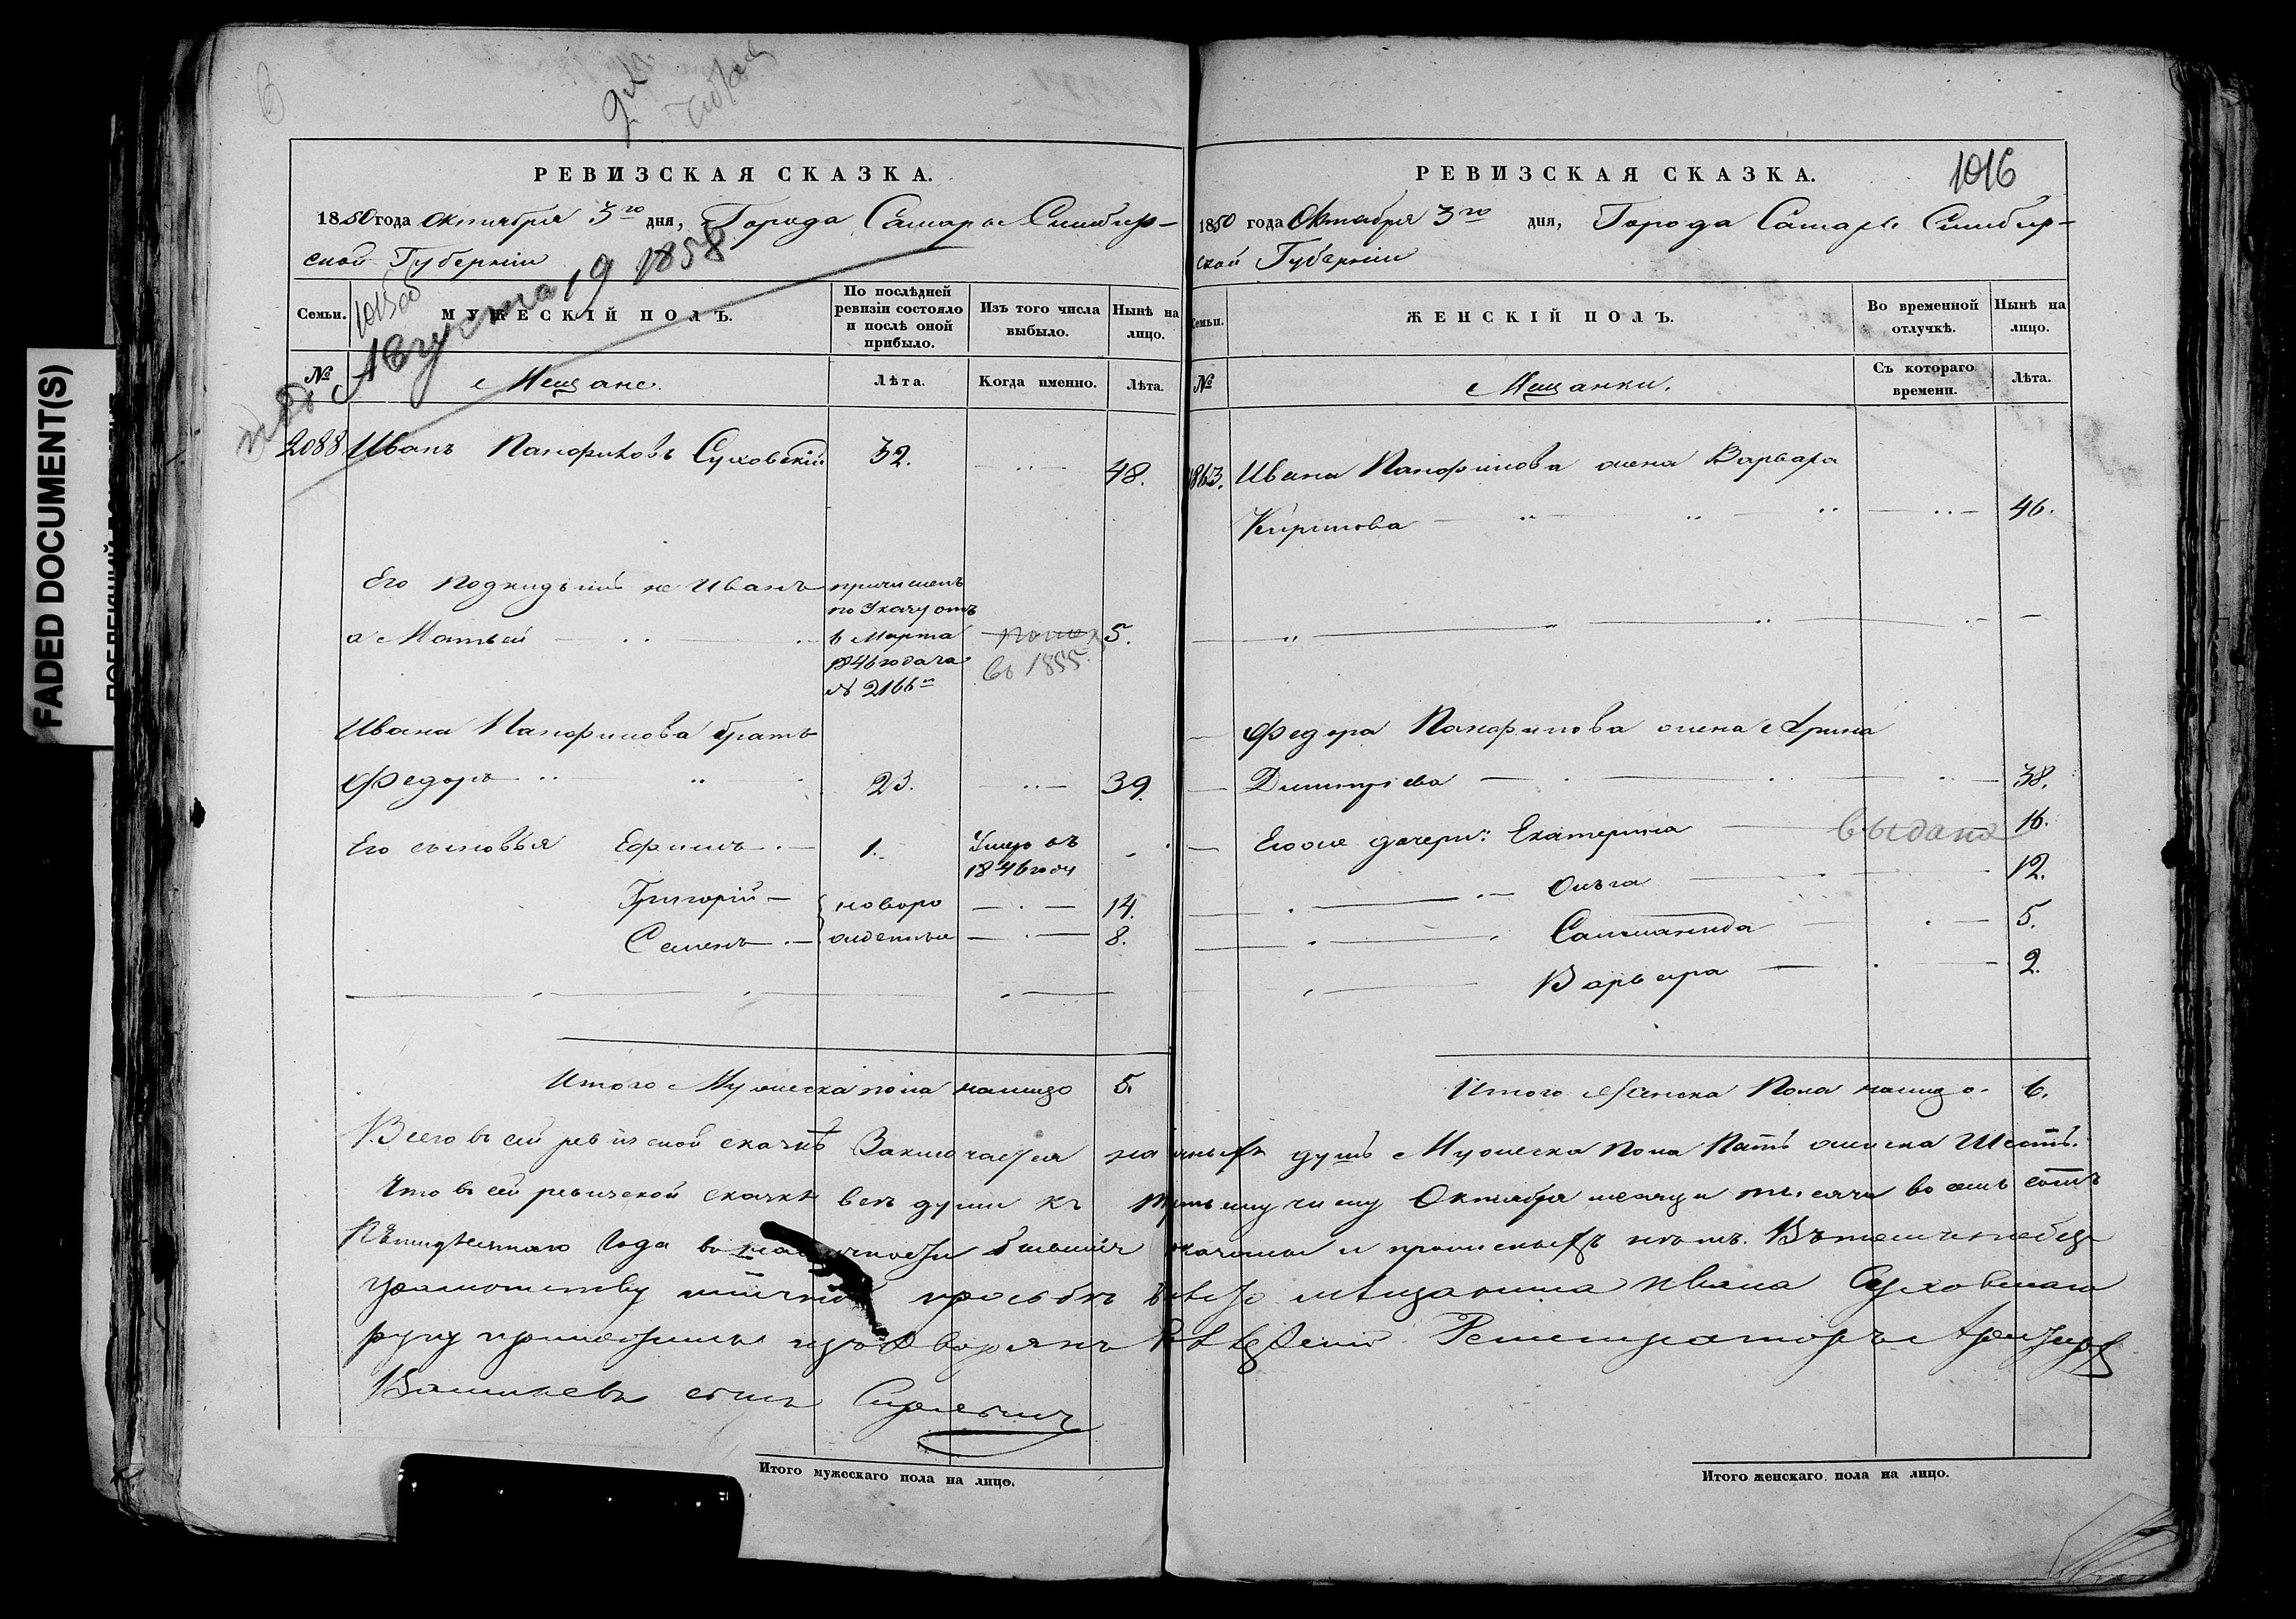 FADED DOCUMENT(S)
1016
РЕВИЗСКАЯ СКАЗКА.
1850 года Октября 3го дня, Города Самары Симбир-
ской Губерніи
Августа 19 1858
Семьи.
МУЖЕСКІЙ ПОЛЪ.
По послѣдней
ревизіи состояло
и послѣ оной
прибыло.
Изъ того числа
выбыло.
Нынѣ на
лицо.
№
Мещане.
Лѣта.
Когда именно.
Лѣта.
2088 Иванъ Панфиловъ Суховскій 32. 48.
Его подкидышъ Иванъ причисленъ
по Указу отъ
а Матвей 6 Марта 5.
1846 года за
во 1855.
№ 2166м
Ивана Панфилова братъ
Федоръ 23. 39.
Его сыновья Ефимъ 1. Умеръ въ
1846 году
Григорій новоро 14.
Семенъ жденные 8.
Итого Мужеска пола налицо 5.
РЕВИЗСКАЯ СКАЗКА.
1850 года Октября 3го дня, Города Самары Симбир-
ской Губерніи
Семьи.
ЖЕНСКІЙ ПОЛЪ.
Во временной
отлучкѣ.
Нынѣ на
лицо.
№
Мещанки.
Съ котораго
времени.
Лѣта.
Ивана Панфилова жена Варвара
Кирилова 46.
Федора Панфилова жена Арина
Димитріева 38.
Егоже дочери: Екатерина выдана 16.
Ольга 12.
Саломанида 5.
Варвара 2.
Итого Женска Пола налицо. 6.
Всего въ сей ревизской сказкѣ Заключается наличныхъ душъ Мужеска пола Пять женска Шесть.
Что въ сей ревизской сказкѣ всѣ души къ третьему числу Октября месяца тысяча восемь сотъ
Пѣтидѣсятаго Года въ наличности бывшія показаны и прописныхъ нѣтъ. Въ томъ
просьбѣ мѣщанина Ивана Суховскаго
руку приложилъ изъ Дворянъ Регистраторъ
сынъ
Итого мужескаго пола на лицо.
Итого женскаго пола на лицо.